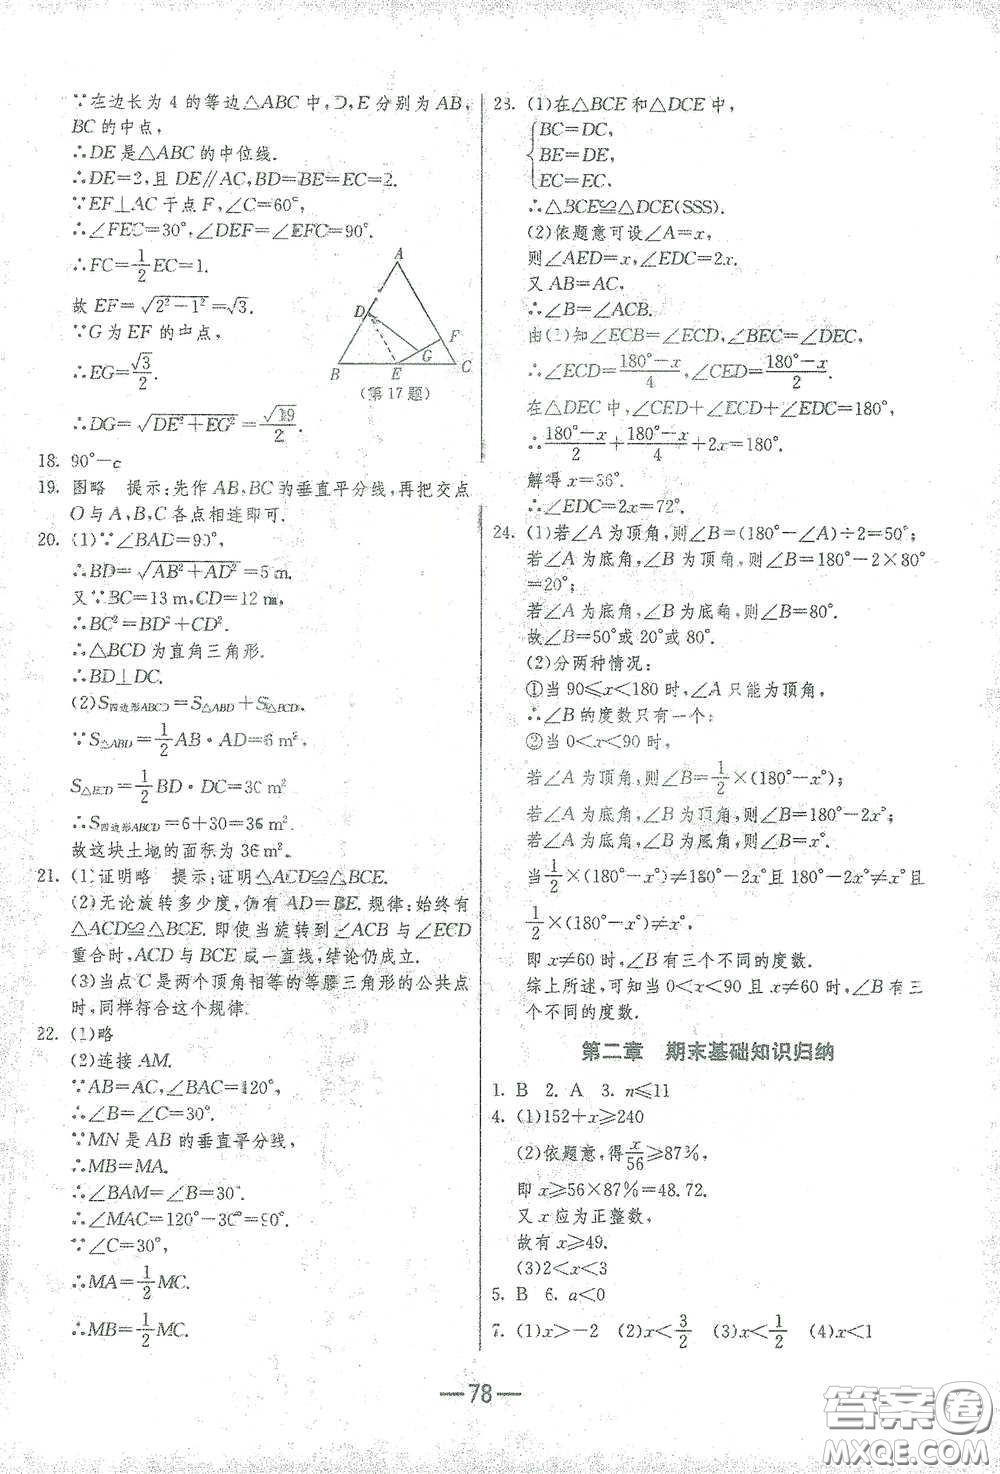 ∵在边长为 4 的等边△ABC 中,D,E 分别为 AB,
BC 的中点,
∴DE 是△ABC 的中位线.
∴DE=2,且 DE∥AC,BD=BE=EC=2.
∵EF⊥AC 于点 F,∠C=60°,
∴∠FEC=30°,∠DEF=∠EFC=90°.
∴FC=1/2EC=1.
故 EF=√(2²-1²)=√3.
∵G 为 EF 的中点,
∴EG=√3/2.
∴DG=√(DE²+EG²)=√19/2.
A
D
F
G
B E C
(第 17 题)
18. 90°-c
19. 图略 提示:先作 AB,BC 的垂直平分线,再把交点
O 与 A,B,C 各点相连即可.
20. (1)∵∠BAD=90°,
∴BD=√(AB²+AD²)=5 m.
又∵BC=13 m,CD=12 m,
∴BC²=BD²+CD².
∴△BCD 为直角三角形.
∴BD⊥DC.
(2)S四边形ABCD=S△ABD+S△BCD.
∵S△ABD=1/2AB·AD=6 m².
S△BCD=1/2BD·DC=30 m².
∴S四边形ABCD=6+30=36 m².
故这块土地的面积为 36 m².
21. (1)证明略 提示:证明△ACD≌△BCE.
(2)无论旋转多少度,仍有 AD=BE. 规律:始终有
△ACD≌△BCE. 即使当旋转到∠ACB 与∠ECD
重合时,ACD 与 BCE 成一直线,结论仍成立.
(3)当点 C 是两个顶角相等的等腰三角形的公共点
时,同样符合这个规律.
22. (1)略
(2)连接 AM.
∵AB=AC,∠BAC=120°,
∴∠B=∠C=30°.
∵MN 是 AB 的垂直平分线,
∴MB=MA.
∴∠BAM=∠B=30°.
∴∠MAC=120°-30°=90°.
∵∠C=30°,
∴MA=1/2MC.
∴MB=1/2MC.
23. (1)在△BCE 和△DCE 中,
BC=DC,
BE=DE,
EC=EC,
∴△BCE≌△DCE(SSS).
(2)依题意可设∠A=x,
则∠AED=x,∠EDC=2x.
又 AB=AC,
∴∠B=∠ACB.
由(1)知∠ECB=∠ECD,∠BEC=∠DEC,
∴∠ECD=(180°-x)/4,∠CED=(180°-x)/2.
在△DEC 中,∠CED+∠ECD+∠EDC=180°,
∴(180°-x)/2+(180°-x)/4+2x=180°.
解得 x=36°.
∴∠EDC=2x=72°.
24. (1)若∠A 为顶角,则∠B=(180°-∠A)÷2=50°;
若∠A 为底角,∠B 为顶角,则∠B=180°-2×80°
=20°;
若∠A 为底角,∠B 为底角,则∠B=80°.
故∠B=50°或 20°或 80°.
(2)分两种情况:
①当 90≤x<180 时,∠A 只能为顶角,
∴∠B 的度数只有一个;
②当 0<x<90 时,
若∠A 为顶角,则∠B=1/2×(180°-x°);
若∠A 为底角,∠B 为顶角,则∠B=180°-2x°;
若∠A 为底角,∠B 为底角,则∠B=x°.
当1/2×(180°-x°)≠180°-2x°且 180°-2x°≠x°且
1/2×(180°-x°)≠x°,
即 x≠60 时,∠B 有三个不同的度数.
综上所述,可知当 0<x<90 且 x≠60 时,∠B 有三
个不同的度数.
第二章 期末基础知识归纳
1. B 2. A 3. n≤11
4. (1)152+x≥240
(2)依题意,得x/56≥87%,
即 x≥56×87%=48.72.
又 x 应为正整数,
故有 x≥49.
(3)2<x<3
5. B 6. a<0
7. (1)x>-2 (2)x<3/2 (3)x<1/2 (4)x<1
—78—
答案圈
MXQE.COM